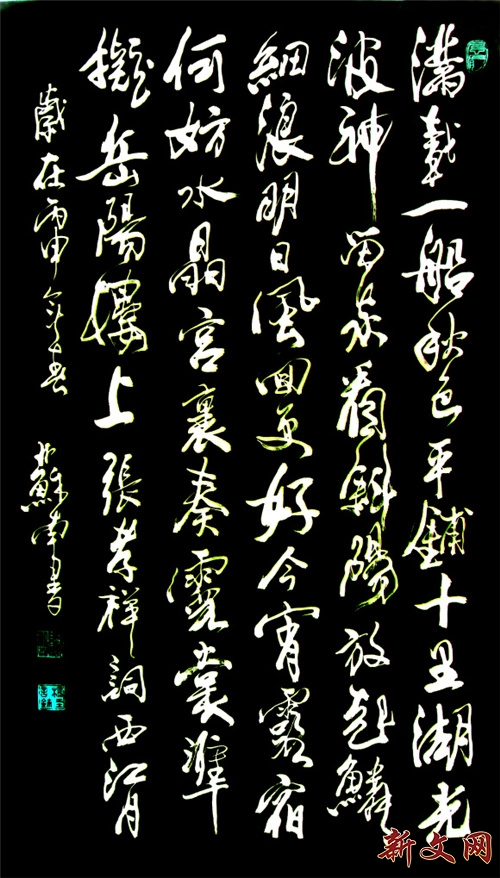 滿載一船秋色平鋪十里湖光
波神留我看斜陽放起鱗
細浪明日風回更好今宵露宿
何妨水晶宮裏奏霓裳準
擬岳陽樓上 張孝祥詞西江月
歲在丙申年春 蘇南書
新文网